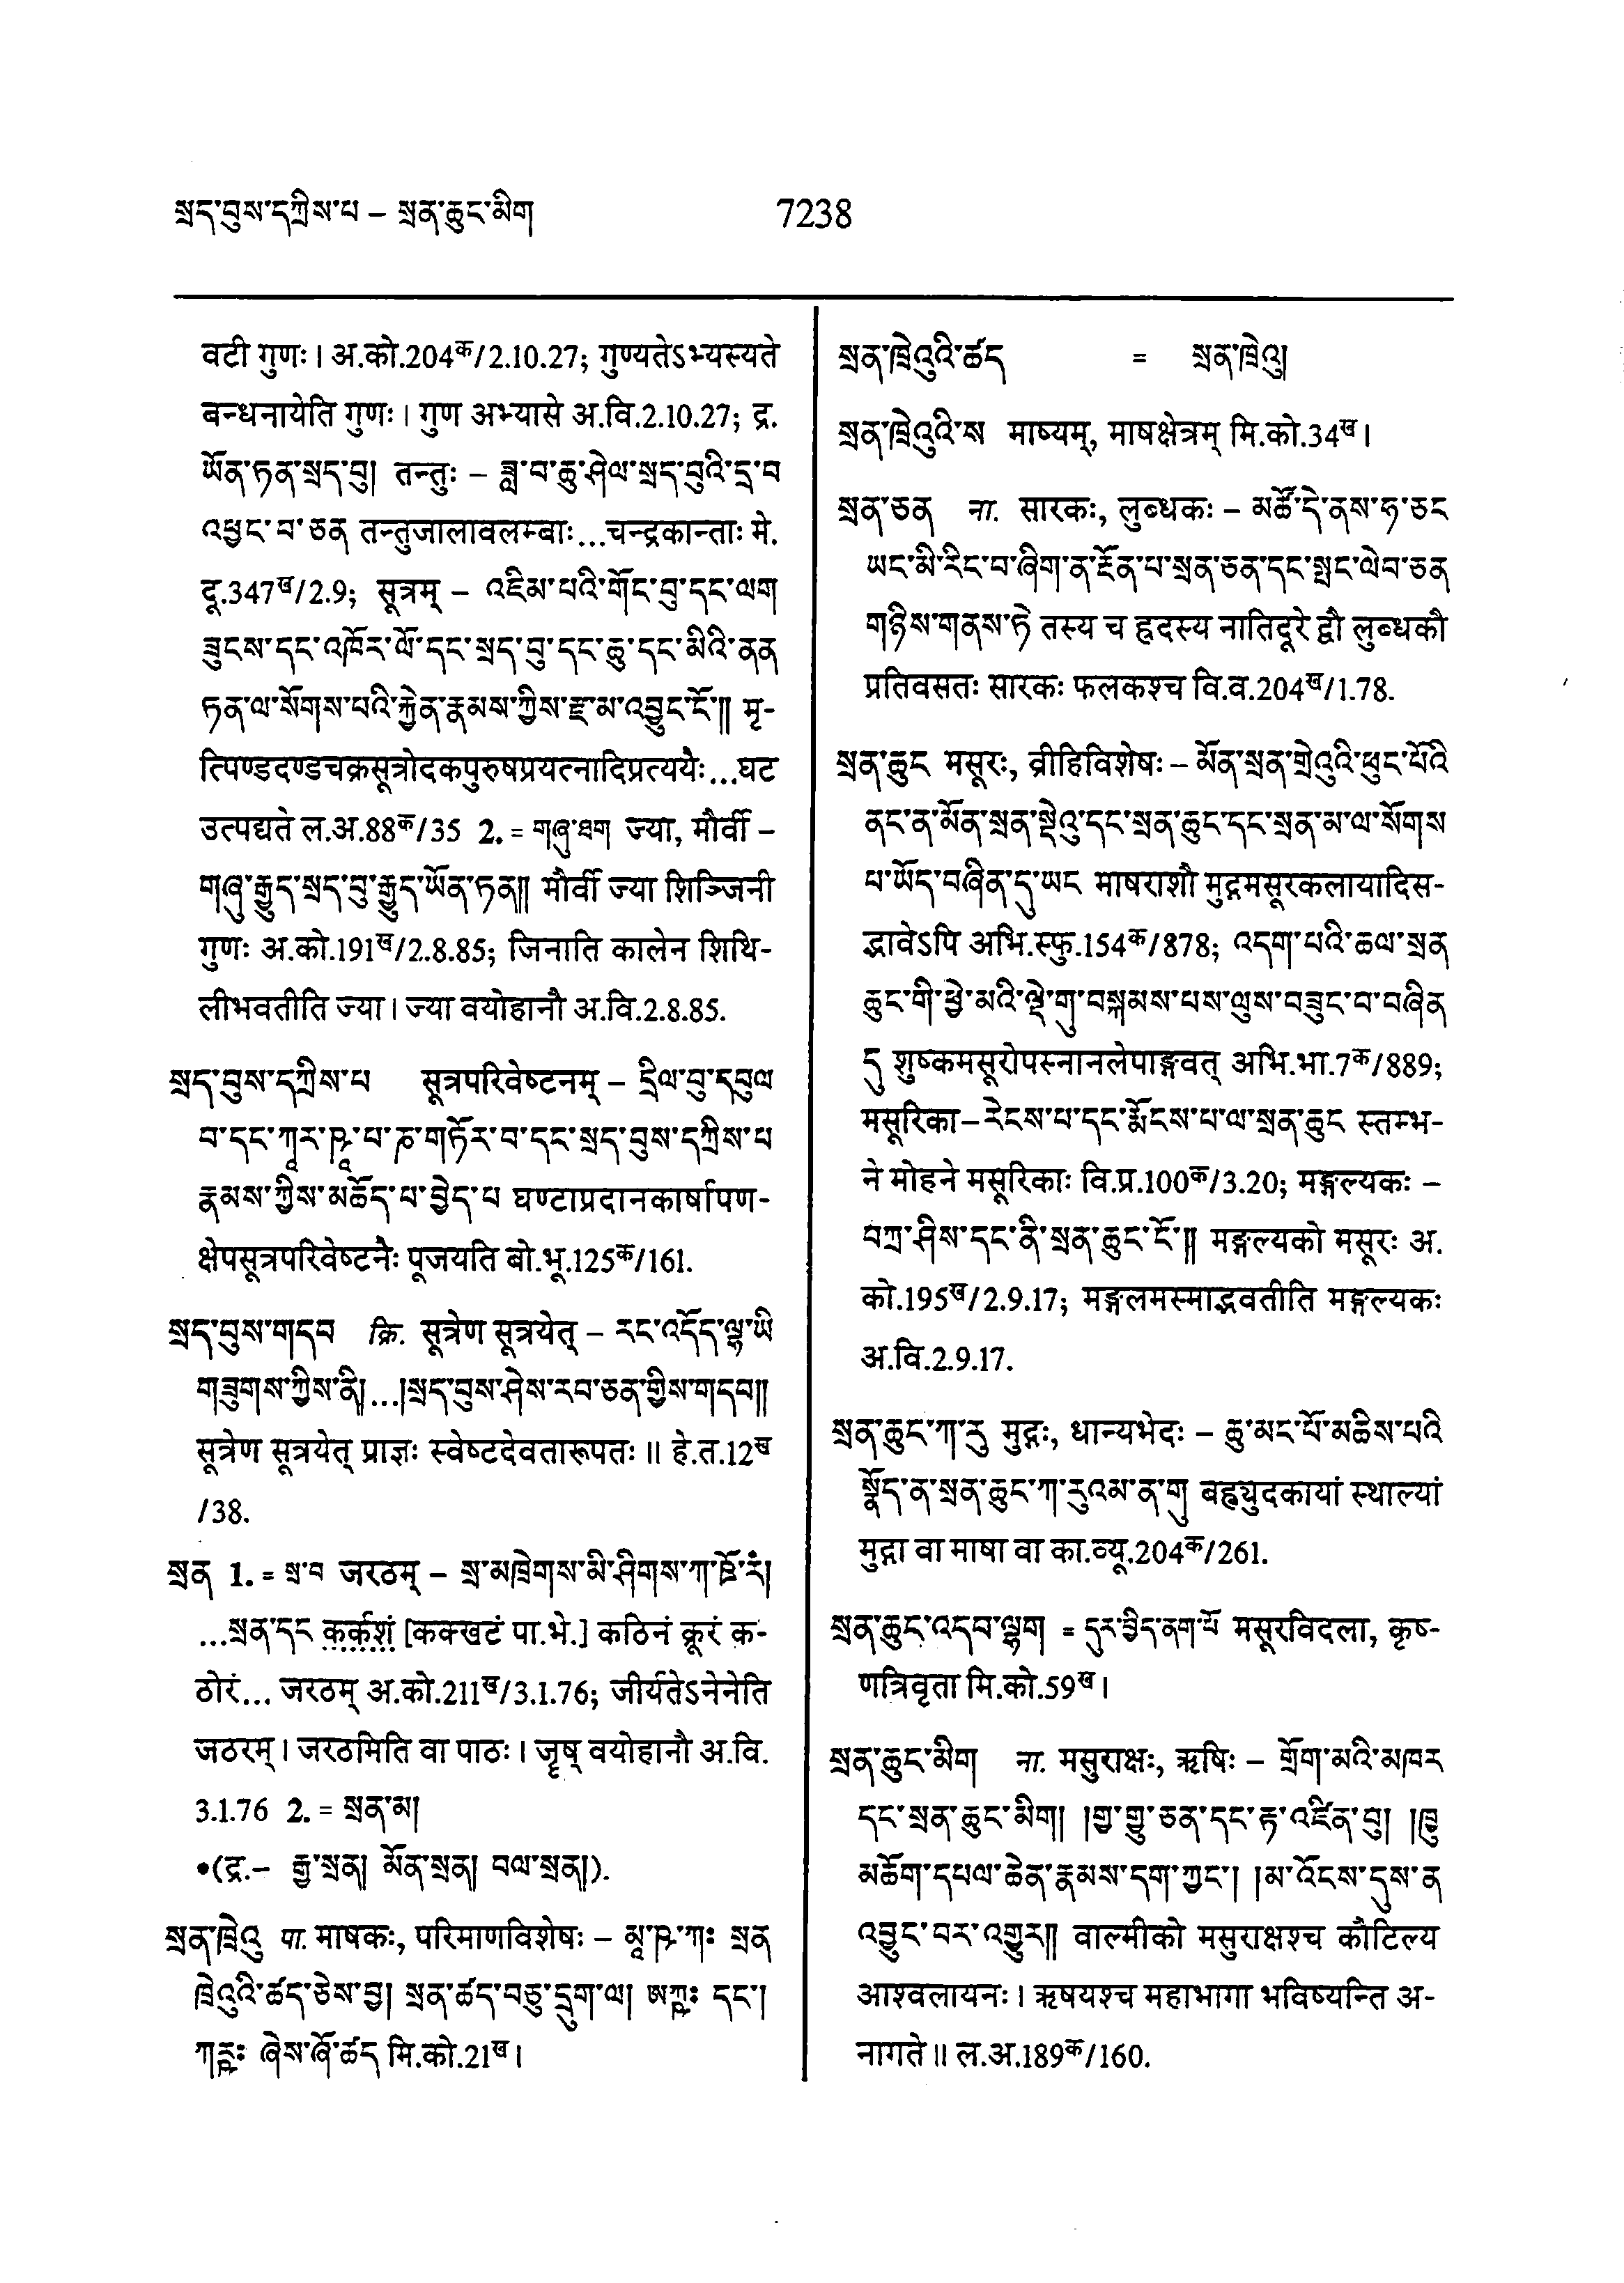 སྲད་བུས་དཀྲིས་པ – སྲན་ཆུང་མིག
7238
वटी गुणः। अ.को.204क/2.10.27; गुण्यतेऽभ्यस्यते
बन्धनायेति गुणः। गुण अभ्यासे अ.वि.2.10.27; द्र.
ཡོན་ཏན་སྲད་བུ། तन्तुः – ཟླ་བ་ཆུ་ཤེལ་སྲད་བུའི་དྲ་བ
འཕྱང་བ་ཅན तन्तुजालावलम्बाः...चन्द्रकान्ताः मे.
दू.347ख/2.9; सूत्रम् – འཇིམ་པའི་གོང་བུ་དང་ལག
ཟུངས་དང་འཁོར་ལོ་དང་སྲད་བུ་དང་ཆུ་དང་མིའི་ནན
ཏན་ལ་སོགས་པའི་རྐྱེན་རྣམས་ཀྱིས་རྫ་མ་འབྱུང་ངོ་༎ मृ-
त्पिण्डदण्डचक्रसूत्रोदकपुरुषप्रयत्नादिप्रत्ययैः...घट
उत्पद्यते ल.अ.88क/35 2. = གཞུ་ཐག ज्या, मौर्वी –
གཞུ་རྒྱུད་སྲད་བུ་རྒྱུད་ཡོན་ཏན༎ मौर्वी ज्या शिञ्जिनी
गुणः अ.को.191ख/2.8.85; जिनाति कालेन शिथि-
लीभवतीति ज्या। ज्या वयोहानौ अ.वि.2.8.85.
སྲད་བུས་དཀྲིས་པ सूत्रपरिवेष्टनम् – དྲིལ་བུ་དབུལ
བ་དང་ཀཱར་ཥཱ་པ་ཎ་གཏོར་བ་དང་སྲད་བུས་དཀྲིས་པ
རྣམས་ཀྱིས་མཆོད་པ་བྱེད་པ घण्टाप्रदानकार्षापण-
क्षेपसूत्रपरिवेष्टनैः पूजयति बो.भू.125क/161.
སྲད་བུས་གདབ क्रि. सूत्रेण सूत्रयेत् – རང་འདོད་ལྷ་ཡི
གཟུགས་ཀྱིས་ནི།...།སྲད་བུས་ཤེས་རབ་ཅན་གྱིས་གདབ༎
सूत्रेण सूत्रयेत् प्राज्ञः स्वेष्टदेवतारूपतः॥ हे.त.12ख
/38.
སྲན 1. = སྲ་བ जरठम् – སྲ་མཁྲེགས་མི་ཤིགས་ཀ་ཋོ་རཾ།
...སྲན་དང कर्कशं [कक्खटं पा.भे.] कठिनं क्रूरं क-
ठोरं... जरठम् अ.को.211ख/3.1.76; जीर्यतेऽनेनेति
जठरम्। जरठमिति वा पाठः। जॄष् वयोहानौ अ.वि.
3.1.76 2. = སྲན་མ།
•(द्र.– རྒྱ་སྲན། མོན་སྲན། བལ་སྲན།).
སྲན་ཁྲེའུ पा. माषकः, परिमाणविशेषः – མཱ་ཥ་ཀཿ སྲན
ཁྲེའུའི་ཚད་ཅེས་བྱ། སྲན་ཚད་བཅུ་དྲུག་ལ། ཨཀྵཿ དང་།
ཀརྵཿ ཞེས་ཞོ་ཚད मि.को.21ख।
སྲན་ཁྲེའུའི་ཚད = སྲན་ཁྲེའུ།
སྲན་ཁྲེའུའི་ས माष्यम्, माषक्षेत्रम् मि.को.34ख।
སྲན་ཅན ना. सारकः, लुब्धकः – མཚོ་དེ་ནས་ཧ་ཅང
ཡང་མི་རིང་བ་ཞིག་ན་རྔོན་པ་སྲན་ཅན་དང་སྤང་ལེབ་ཅན
གཉིས་གནས་ཏེ तस्य च ह्रदस्य नातिदूरे द्वौ लुब्धकौ
प्रतिवसतः सारकः फलकश्च वि.व.204ख/1.78.
སྲན་ཆུང मसूरः, व्रीहिविशेषः – མོན་སྲན་གྲེའུའི་ཕུང་པོའི
ནང་ན་མོན་སྲན་སྡེའུ་དང་སྲན་ཆུང་དང་སྲན་མ་ལ་སོགས
པ་ཡོད་བཞིན་དུ་ཡང माषराशौ मुद्गमसूरकलायादिस-
द्भावेऽपि अभि.स्फु.154क/878; འདག་པའི་ཆལ་སྲན
ཆུང་གི་ཕྱེ་མའི་ལྡེ་གུ་བསྐམས་པས་ལུས་བཟུང་བ་བཞིན
དུ शुष्कमसूरोपस्नानलेपाङ्गवत् अभि.भा.7क/889;
मसूरिका–རེངས་པ་དང་རྨོངས་པ་ལ་སྲན་ཆུང स्तम्भ-
ने मोहने मसूरिकाः वि.प्र.100क/3.20; मङ्गल्यकः –
བཀྲ་ཤིས་དང་ནི་སྲན་ཆུང་ངོ་༎ मङ्गल्यको मसूरः अ.
को.195ख/2.9.17; मङ्गलमस्माद्भवतीति मङ्गल्यकः
अ.वि.2.9.17.
སྲན་ཆུང་ཀ་རུ मुद्गः, धान्यभेदः – ཆུ་མང་པོ་མཆིས་པའི
སྣོད་ན་སྲན་ཆུང་ཀ་རུའམ་ན་གུ बह्वयुदकायां स्थाल्यां
मुद्गा वा माषा वा का.व्यू.204क/261.
སྲན་ཆུང་འདབ་ལྷག = དུར་བྱིད་ནག་པོ मसूरविदला, कृष्-
णत्रिवृता मि.को.59ख।
སྲན་ཆུང་མིག ना. मसुराक्षः, ऋषिः – གྲོག་མའི་མཁར
དང་སྲན་ཆུང་མིག། །གྱ་གྱུ་ཅན་དང་རྟ་འཛིན་བུ། །ཁྱུ
མཆོག་དཔལ་ཆེན་རྣམས་དག་ཀྱང་། །མ་འོངས་དུས་ན
འབྱུང་བར་འགྱུར༎ वाल्मीको मसुराक्षश्च कौटिल्य
आश्वलायनः। ऋषयश्च महाभागा भविष्यन्ति अ-
नागते॥ ल.अ.189क/160.